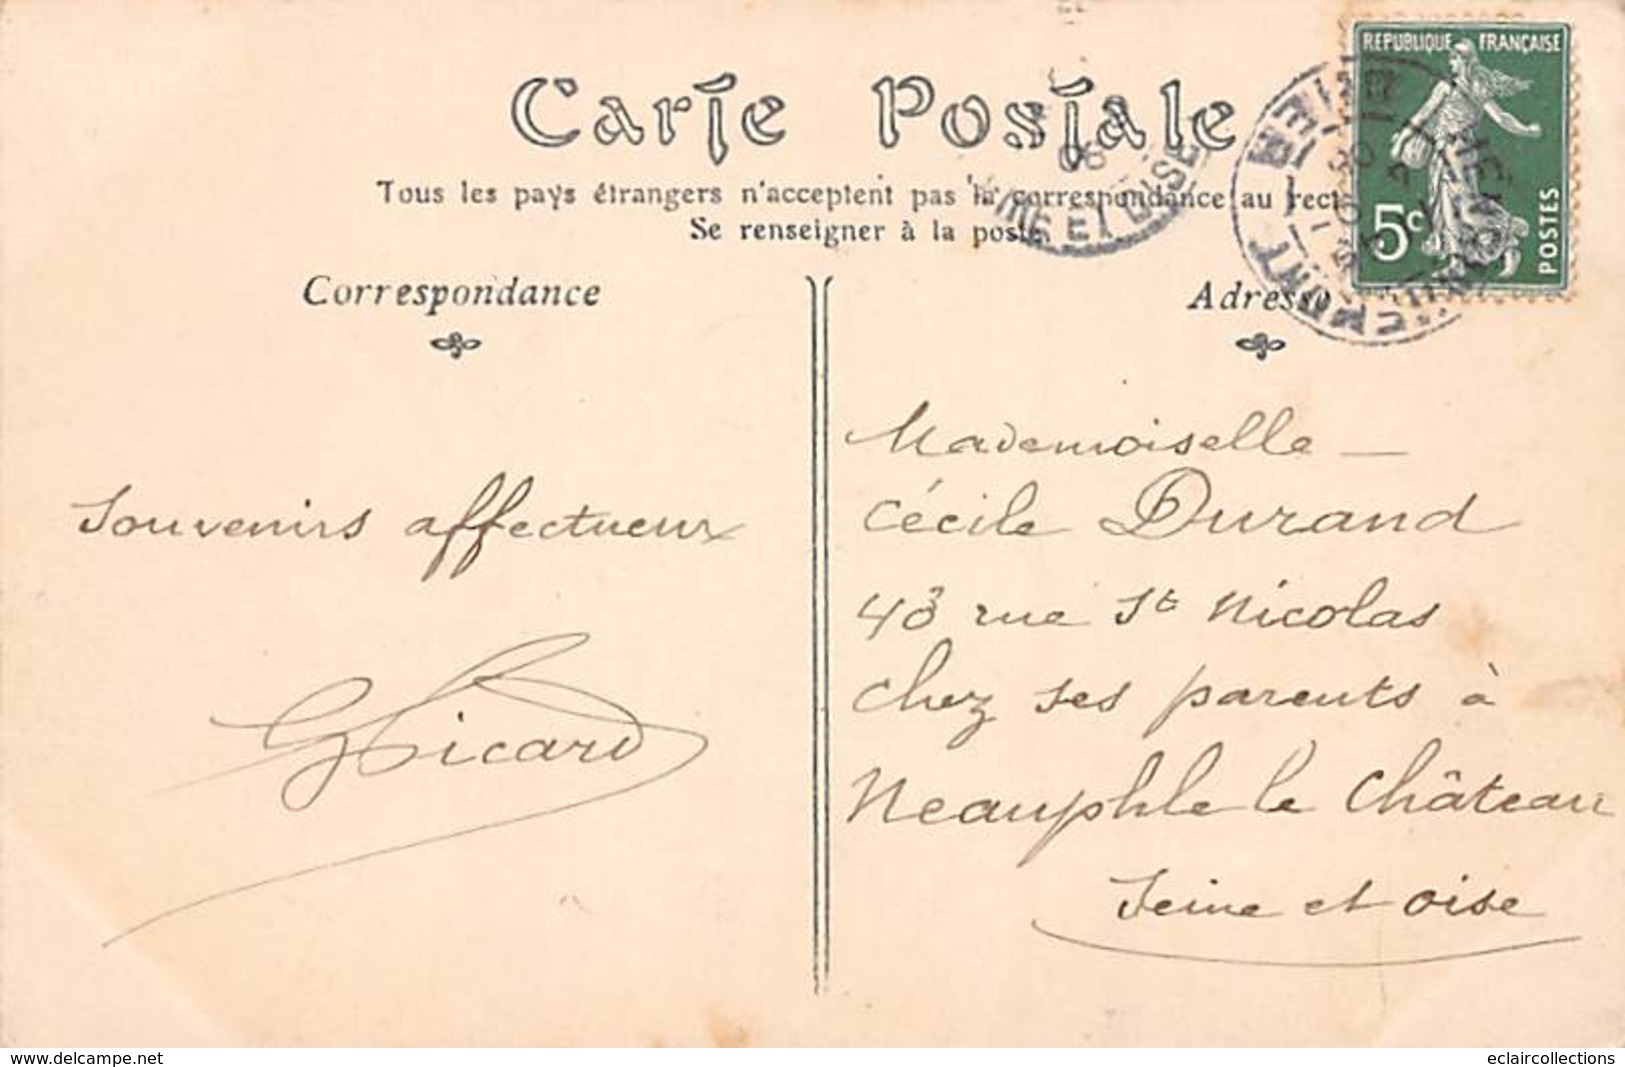 Carte Postale
Tous les pays étrangers n'acceptent pas la correspondance au rect
Se renseigner à la poste.
Correspondance
Adresse
REPUBLIQUE FRANÇAISE
5c
POSTES
06
SEINE ET OISE
Souvenirs affectueux
G Sicard
Mademoiselle —
Cécile Durand
43 rue St Nicolas
chez ses parents à
Neauphle le Château
Seine et oise
www.delcampe.net
eclaircollections